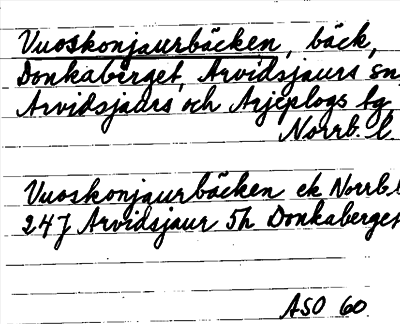 Vuoskonjaurbäcken, bäck,
Donkaberget, Arvidsjaurs sn,
Arvidsjaurs och Arjeplogs tg
Norrb. l.
Vuoskonjaurbäcken ek Norrb.l
24J Arvidsjaur 5h Donkaberget
ASO 60